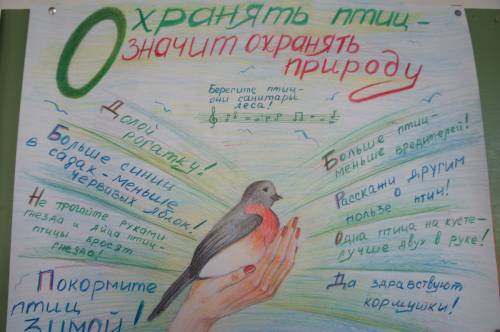 Охранять птиц -
значит охранять
природу
Берегите птиц -
они санитары
леса!
Долой
рогатку!
Больше синиц
в садах - меньше
червивых яблок!
Не трогайте руками
гнезда и яйца птиц -
птицы бросят
гнездо!
Покормите
птиц
зимой!
Больше птиц -
меньше вредителей!
Расскажи другим
о
пользе птиц!
Одна птица на кусте -
лучше двух в руке!
Да здравствуют
кормушки!